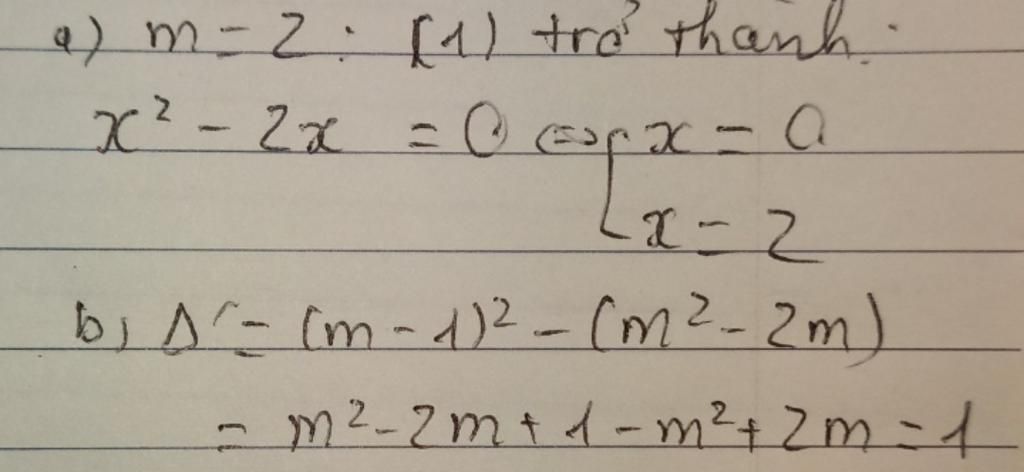 a) m = 2 : (1) trở thành :
x² - 2x = 0 ⇔ [ x = 0
x = 2
b) Δ' = (m - 1)² - (m² - 2m)
= m² - 2m + 1 - m² + 2m = 1